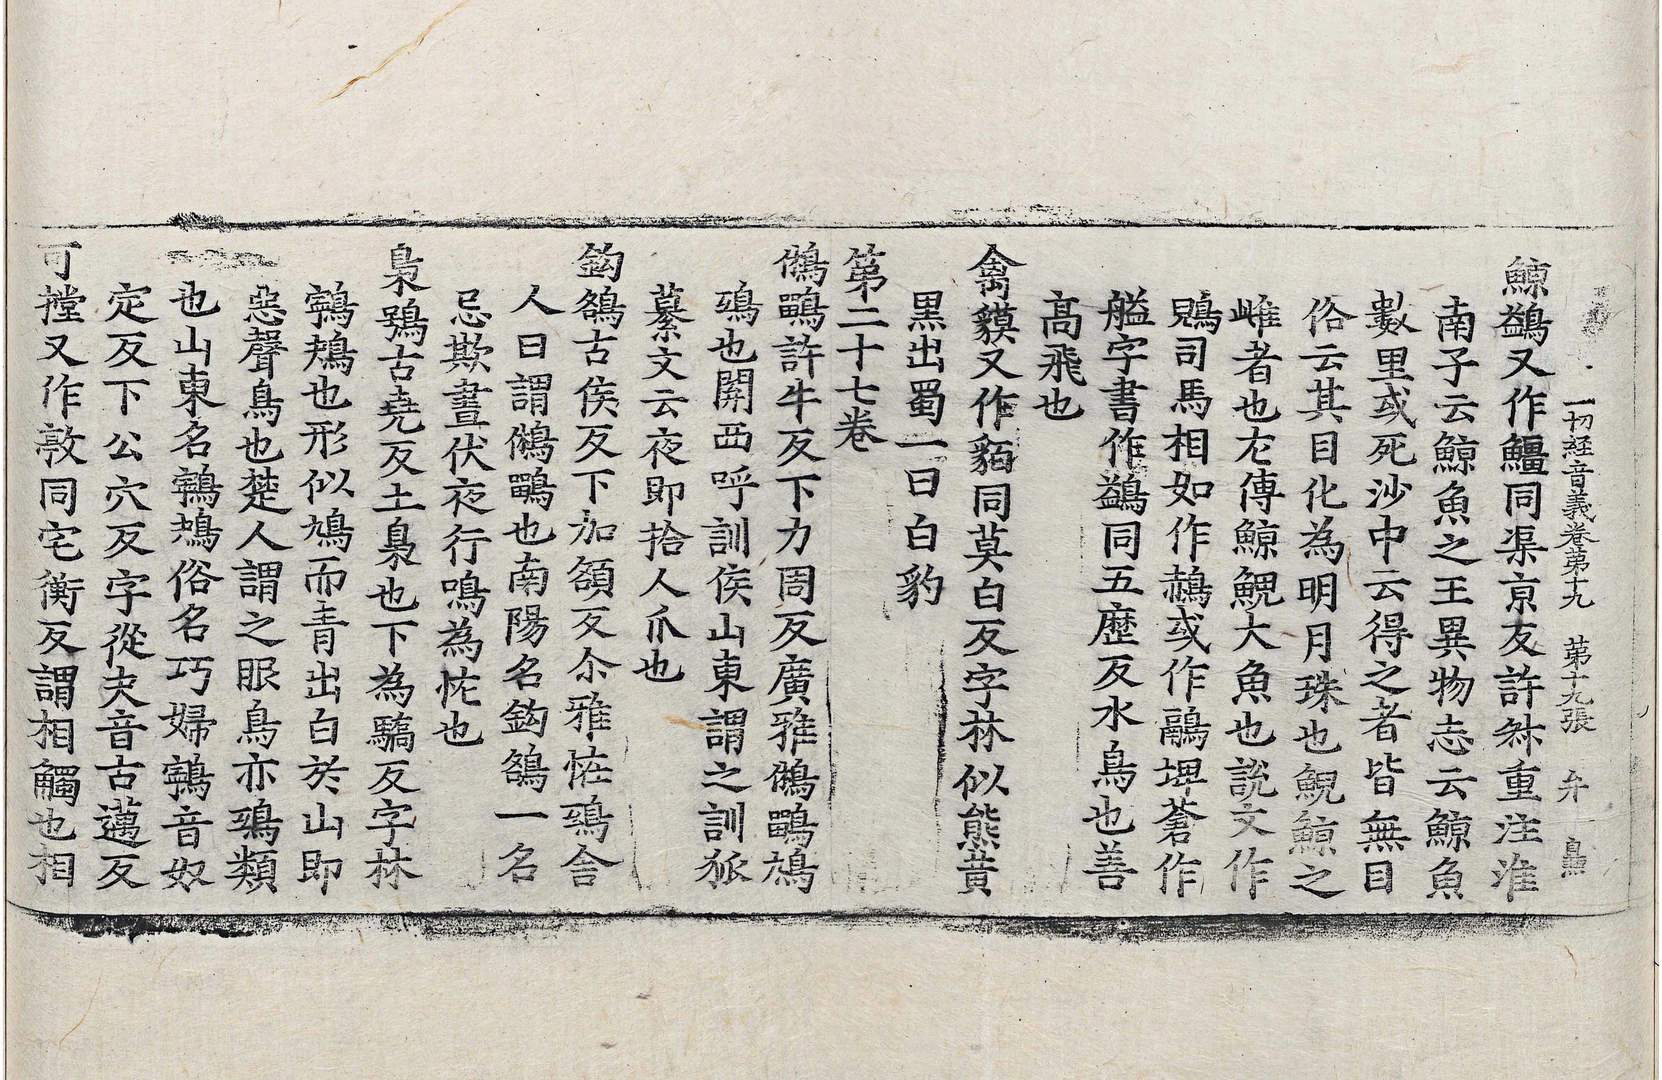 一切經音義卷第十九　第十九張　弁
鯨鷁又作䲔同渠京反許叔重注淮
南子云鯨魚之王異物志云鯨魚
數里或死沙中云得之者皆無目
俗云其目化為明月珠也鯢鯨之
雌者也左傳鯨鯢大魚也說文作
鶃司馬相如作鶮或作鷊埤蒼作
艗字書作鷁同五歷反水鳥也善
高飛也
禽貘又作貊同莫白反字林似熊黃
黑出蜀一曰白豹
第二十七卷
鵂鶹許牛反下力周反廣雅鵂鶹鴆
鵶也關西呼訓侯山東謂之訓狐
纂文云夜即拾人爪也
鉤鵅古侯反下加頟反尒雅怪鵶舍
人曰謂鵂鶹也南陽名鉤鵅一名
忌欺晝伏夜行鳴為恠也
梟鴞古堯反土梟也下為驕反字林
鸋鴂也形似鳩而青出白於山即
惡聲鳥也楚人謂之服鳥亦鵶類
也山東名鸋鴂俗名巧婦鸋音奴
定反下公穴反字從夬音古邁反
可摚又作敦同宅衡反謂相觸也相